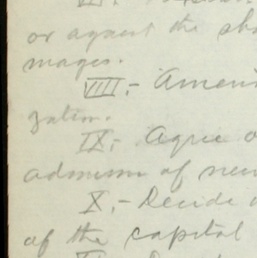 or against the sha
mages.
VIII,- Amen
zation.
IX,- Agree o
admission of new
X,- Decide
of the capital